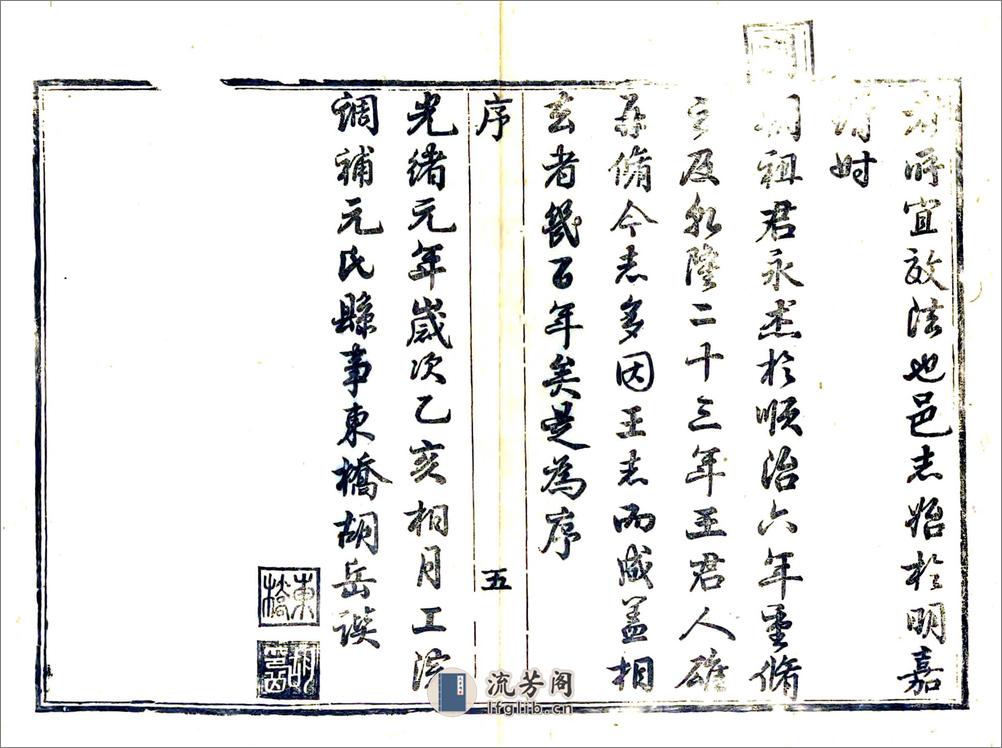 所宜效法也邑志始於明嘉
靖时
國朝祖君永杰於順治六年重脩
之及乾隆二十三年王君人雄
再脩今志多因王志而成蓋相
去者幾百年矣是為序
序
五
光緒元年歲次乙亥相月上浣
調補元氏縣事東橋胡岳譔
東橋
流芳阁
lfglib.cn